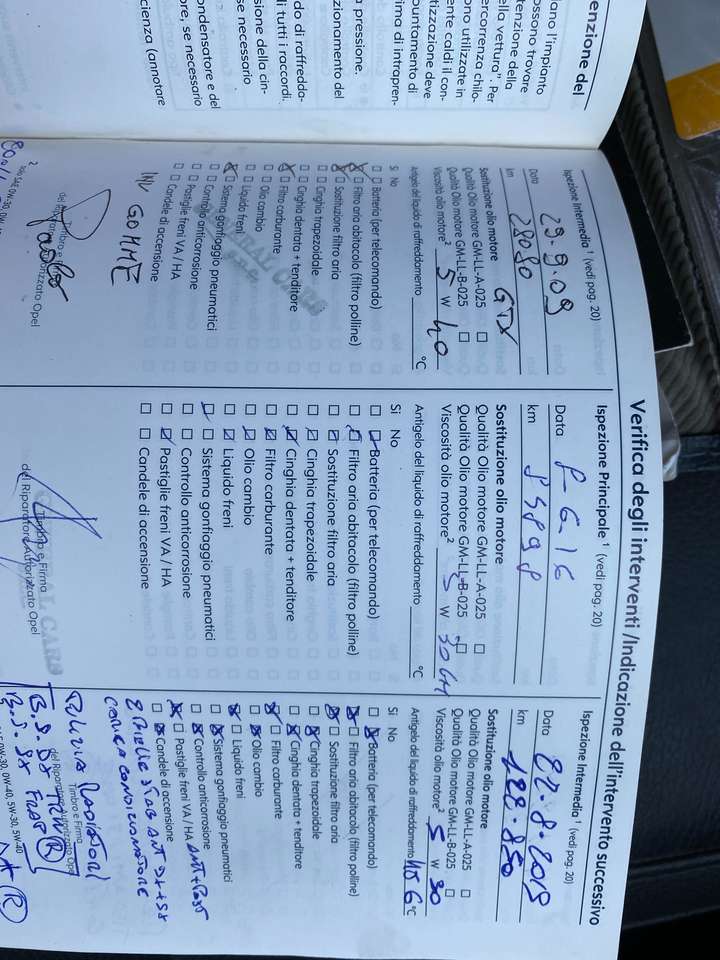 enzione del
iano l'impianto
ossono trovare
tenzione della
ella vettura". Per
ercorrenza chilo-
ono utilizzate in
ente caldi il con-
tizzazione deve
ountamento di
ima di intrapren-
a pressione.
zionamento del
do di raffredda-
i tutti i raccordi.
sione della cin-
se necessario
ondensatore e del
ore, se necessario
cienza (annotare
Verifica degli interventi /Indicazione dell'intervento successivo
Ispezione Intermedia 1 (vedi pag. 20)
Data 29.9.09
km 28080
Sostituzione olio motore GTX
Qualità Olio motore GM-LL-A-025 ☐
Qualità Olio motore GM-LL-B-025 ☐
Viscosità olio motore² 5 W 40
Antigelo del liquido di raffreddamento °C
Si No
☐ ☐ Batteria (per telecomando)
☒ ☐ Filtro aria abitacolo (filtro polline)
☒ ☐ Sostituzione filtro aria
☐ ☐ Cinghia trapezoidale
☐ ☐ Cinghia dentata + tenditore
☒ ☐ Filtro carburante
☐ ☐ Olio cambio
☐ ☐ Liquido freni
☒ ☐ Sistema gonfiaggio pneumatici
☐ ☐ Controllo anticorrosione
☐ ☐ Pastiglie freni VA / HA
☐ ☐ Candele di accensione
INV GOMME
Timbro e Firma
del Riparatore Autorizzato Opel
Ispezione Principale 1 (vedi pag. 20)
Data 8-6-16
km 83898
Sostituzione olio motore
Qualità Olio motore GM-LL-A-025 ☐
Qualità Olio motore GM-LL-B-025 ☑
Viscosità olio motore² 5 W 30
Antigelo del liquido di raffreddamento °C
Si No
Batteria (per telecomando)
Filtro aria abitacolo (filtro polline)
Sostituzione filtro aria
Cinghia trapezoidale
Cinghia dentata + tenditore
Filtro carburante
Olio cambio
Liquido freni
Sistema gonfiaggio pneumatici
Controllo anticorrosione
Pastiglie freni VA / HA
Candele di accensione
Timbro e Firma
del Riparatore Autorizzato Opel
Ispezione Intermedia 1 (vedi pag. 20)
Data 22.8.2019
km 122.850
Sostituzione olio motore
Qualità Olio motore GM-LL-A-025 ☐
Qualità Olio motore GM-LL-B-025 ☐
Viscosità olio motore² 5 W 30
Antigelo del liquido di raffreddamento °C
Si No
Batteria (per telecomando)
Filtro aria abitacolo (filtro polline)
Sostituzione filtro aria
Cinghia trapezoidale
Cinghia dentata + tenditore
Filtro carburante
Olio cambio
Liquido freni
Sistema gonfiaggio pneumatici
Controllo anticorrosione
Pastiglie freni VA / HA ANT+POST
Candele di accensione
BIELLE STAB ANT DX+SX
CONDIZIONATORE
PULIZIA RADIATORI
Timbro e Firma